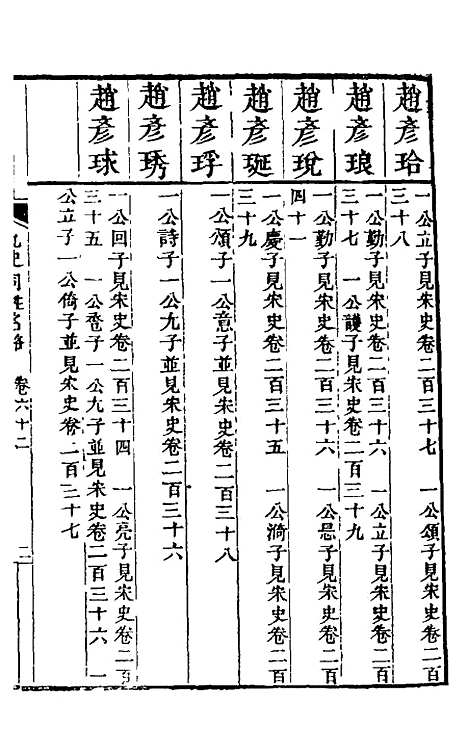 趙彥珨
一公立子見宋史卷二百三十七　一公頌子見宋史卷二百
三十八
趙彥琅
一公勤子見宋史卷二百三十六　一公立子見宋史卷二百
三十七　一公護子見宋史卷二百三十九
趙彥琓
一公勤子見宋史卷二百三十六　一公忌子見宋史卷二百
四十一
趙彥珽
一公慶子見宋史卷二百三十五　一公漪子見宋史卷二百
三十九
趙彥琈
一公頌子一公意子並見宋史卷二百三十八
趙彥琇
一公詩子一公九子並見宋史卷二百三十六
趙彥球
一公回子見宋史卷二百三十四　一公亮子見宋史卷二百
三十五　一公唇子一公九子並見宋史卷二百三十六　一
公立子一公倚子並見宋史卷二百三十七
九史同姓名略　卷六十二　二